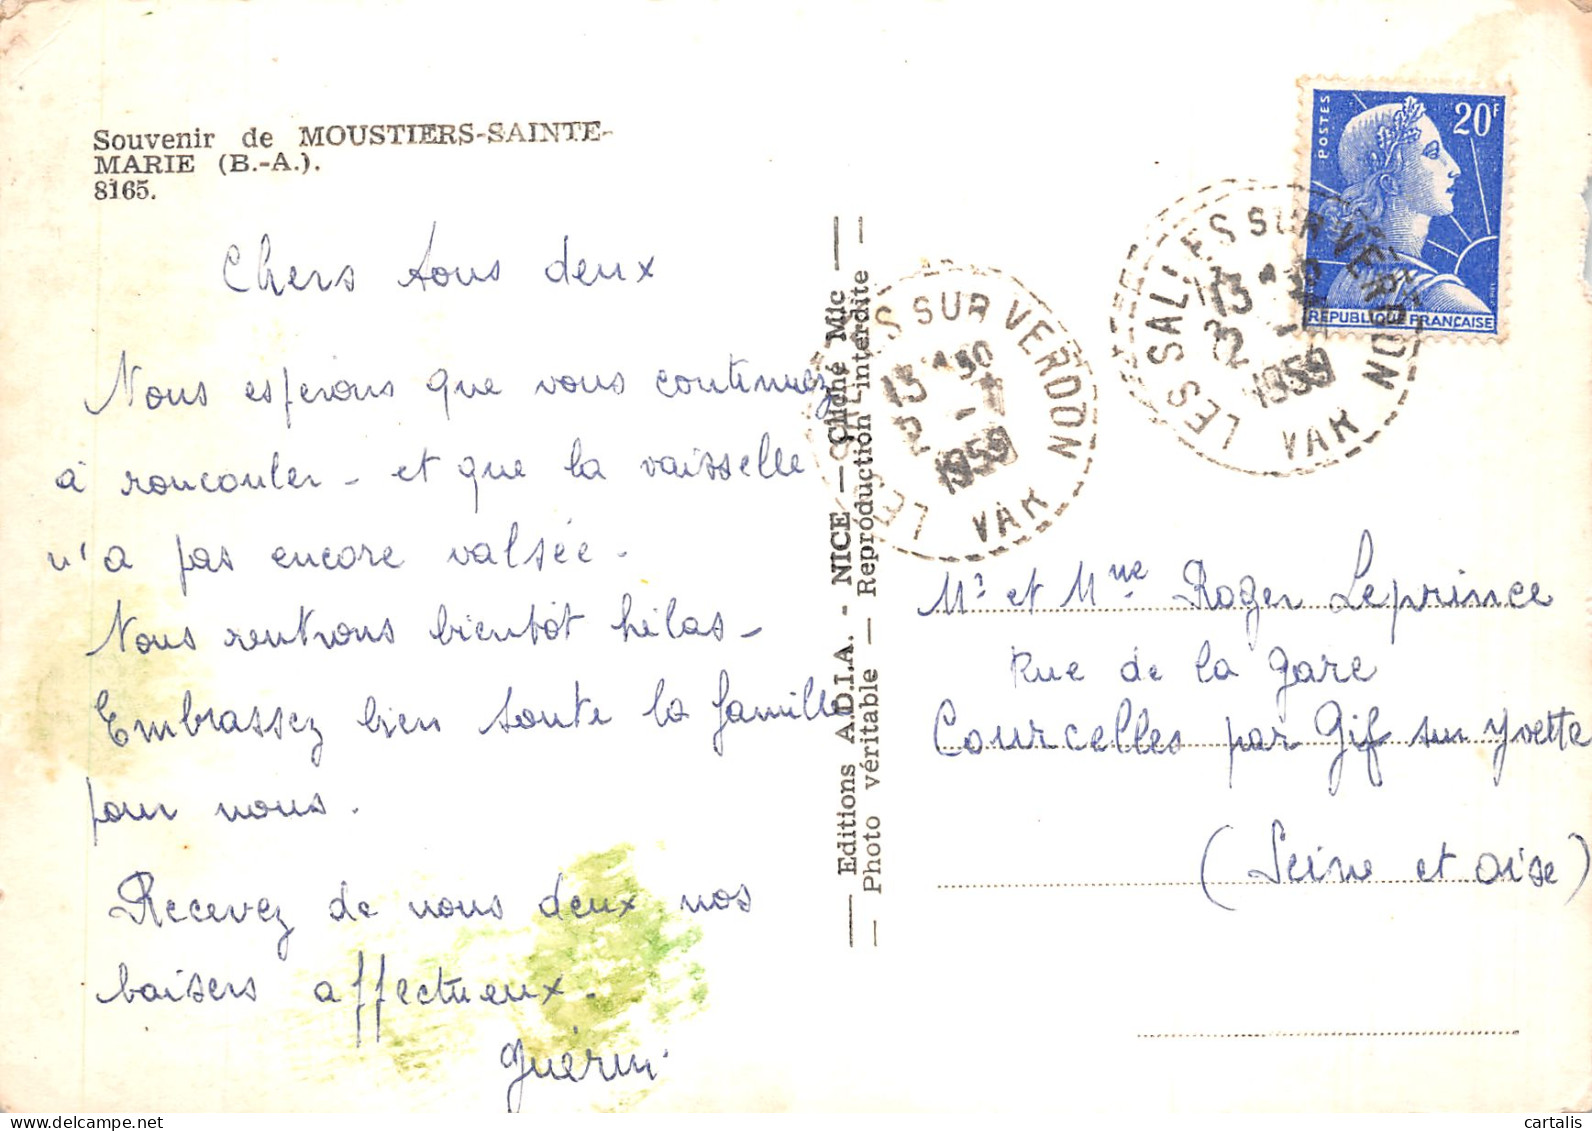 Souvenir de MOUSTIERS-SAINTE-
MARIE (B.-A.).
8165.
Chers tous deux
Nous esperons que vous continuez
à roucouler - et que la vaisselle
n'a pas encore valsée.
Nous rentrons bientôt hélas -
Embrassez bien toute la famille
pour nous.
Recevez de nous deux nos
baisers affectueux.
Guérin
— Editions A.D.I.A. - NICE — Cliché Mic —
— Photo véritable — Reproduction interdite —
POSTES
20F
REPUBLIQUE FRANÇAISE
LES SALLES SUR VERDON
13 30
2
1959
VAR
LES SALLES SUR VERDON
13 30
2
1959
VAR
Mr et Mme Roger Leprince
Rue de la Gare
Courcelles par Gif sur Yvette
(Seine et Oise)
cartalis
www.delcampe.net